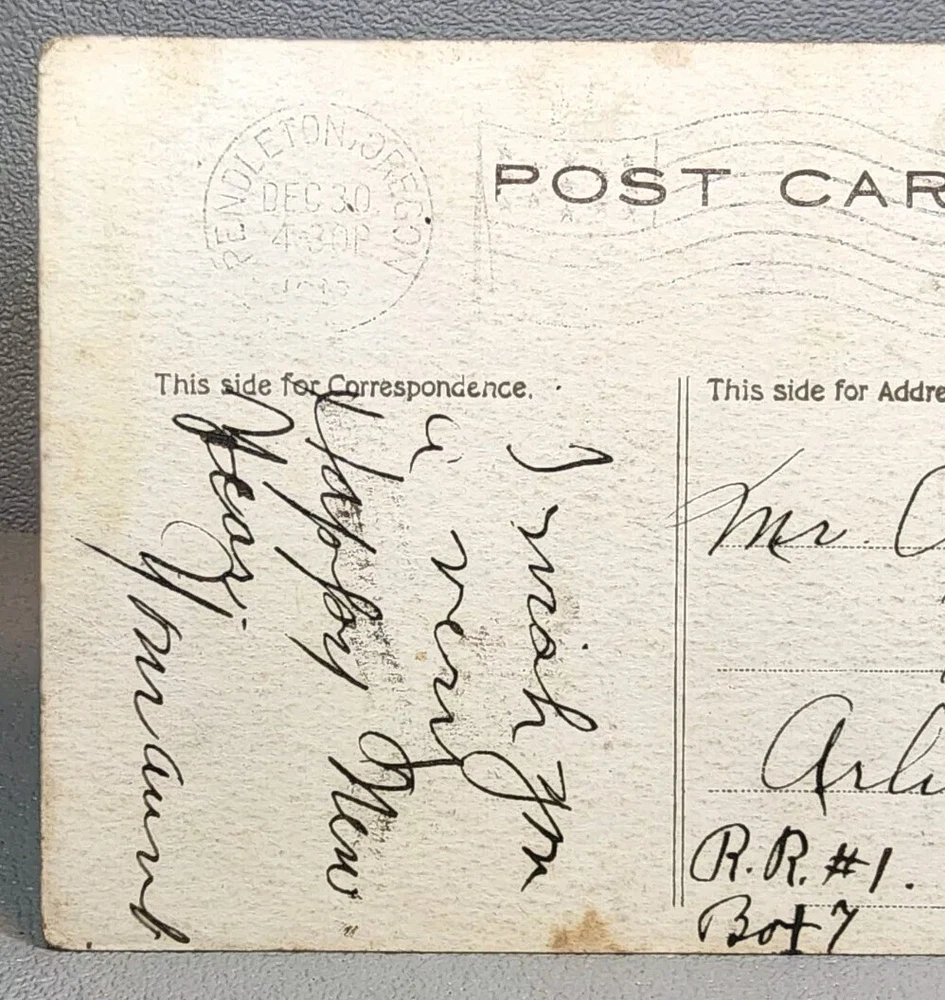 PENDLETON, OREGON
DEC 30
4-30P
POST CAR
This side for Correspondence.
This side for Addre
I wish you
a very
Happy New
Year.
Your aunt
Mr. C
Arli
R.R. #1.
Box 7